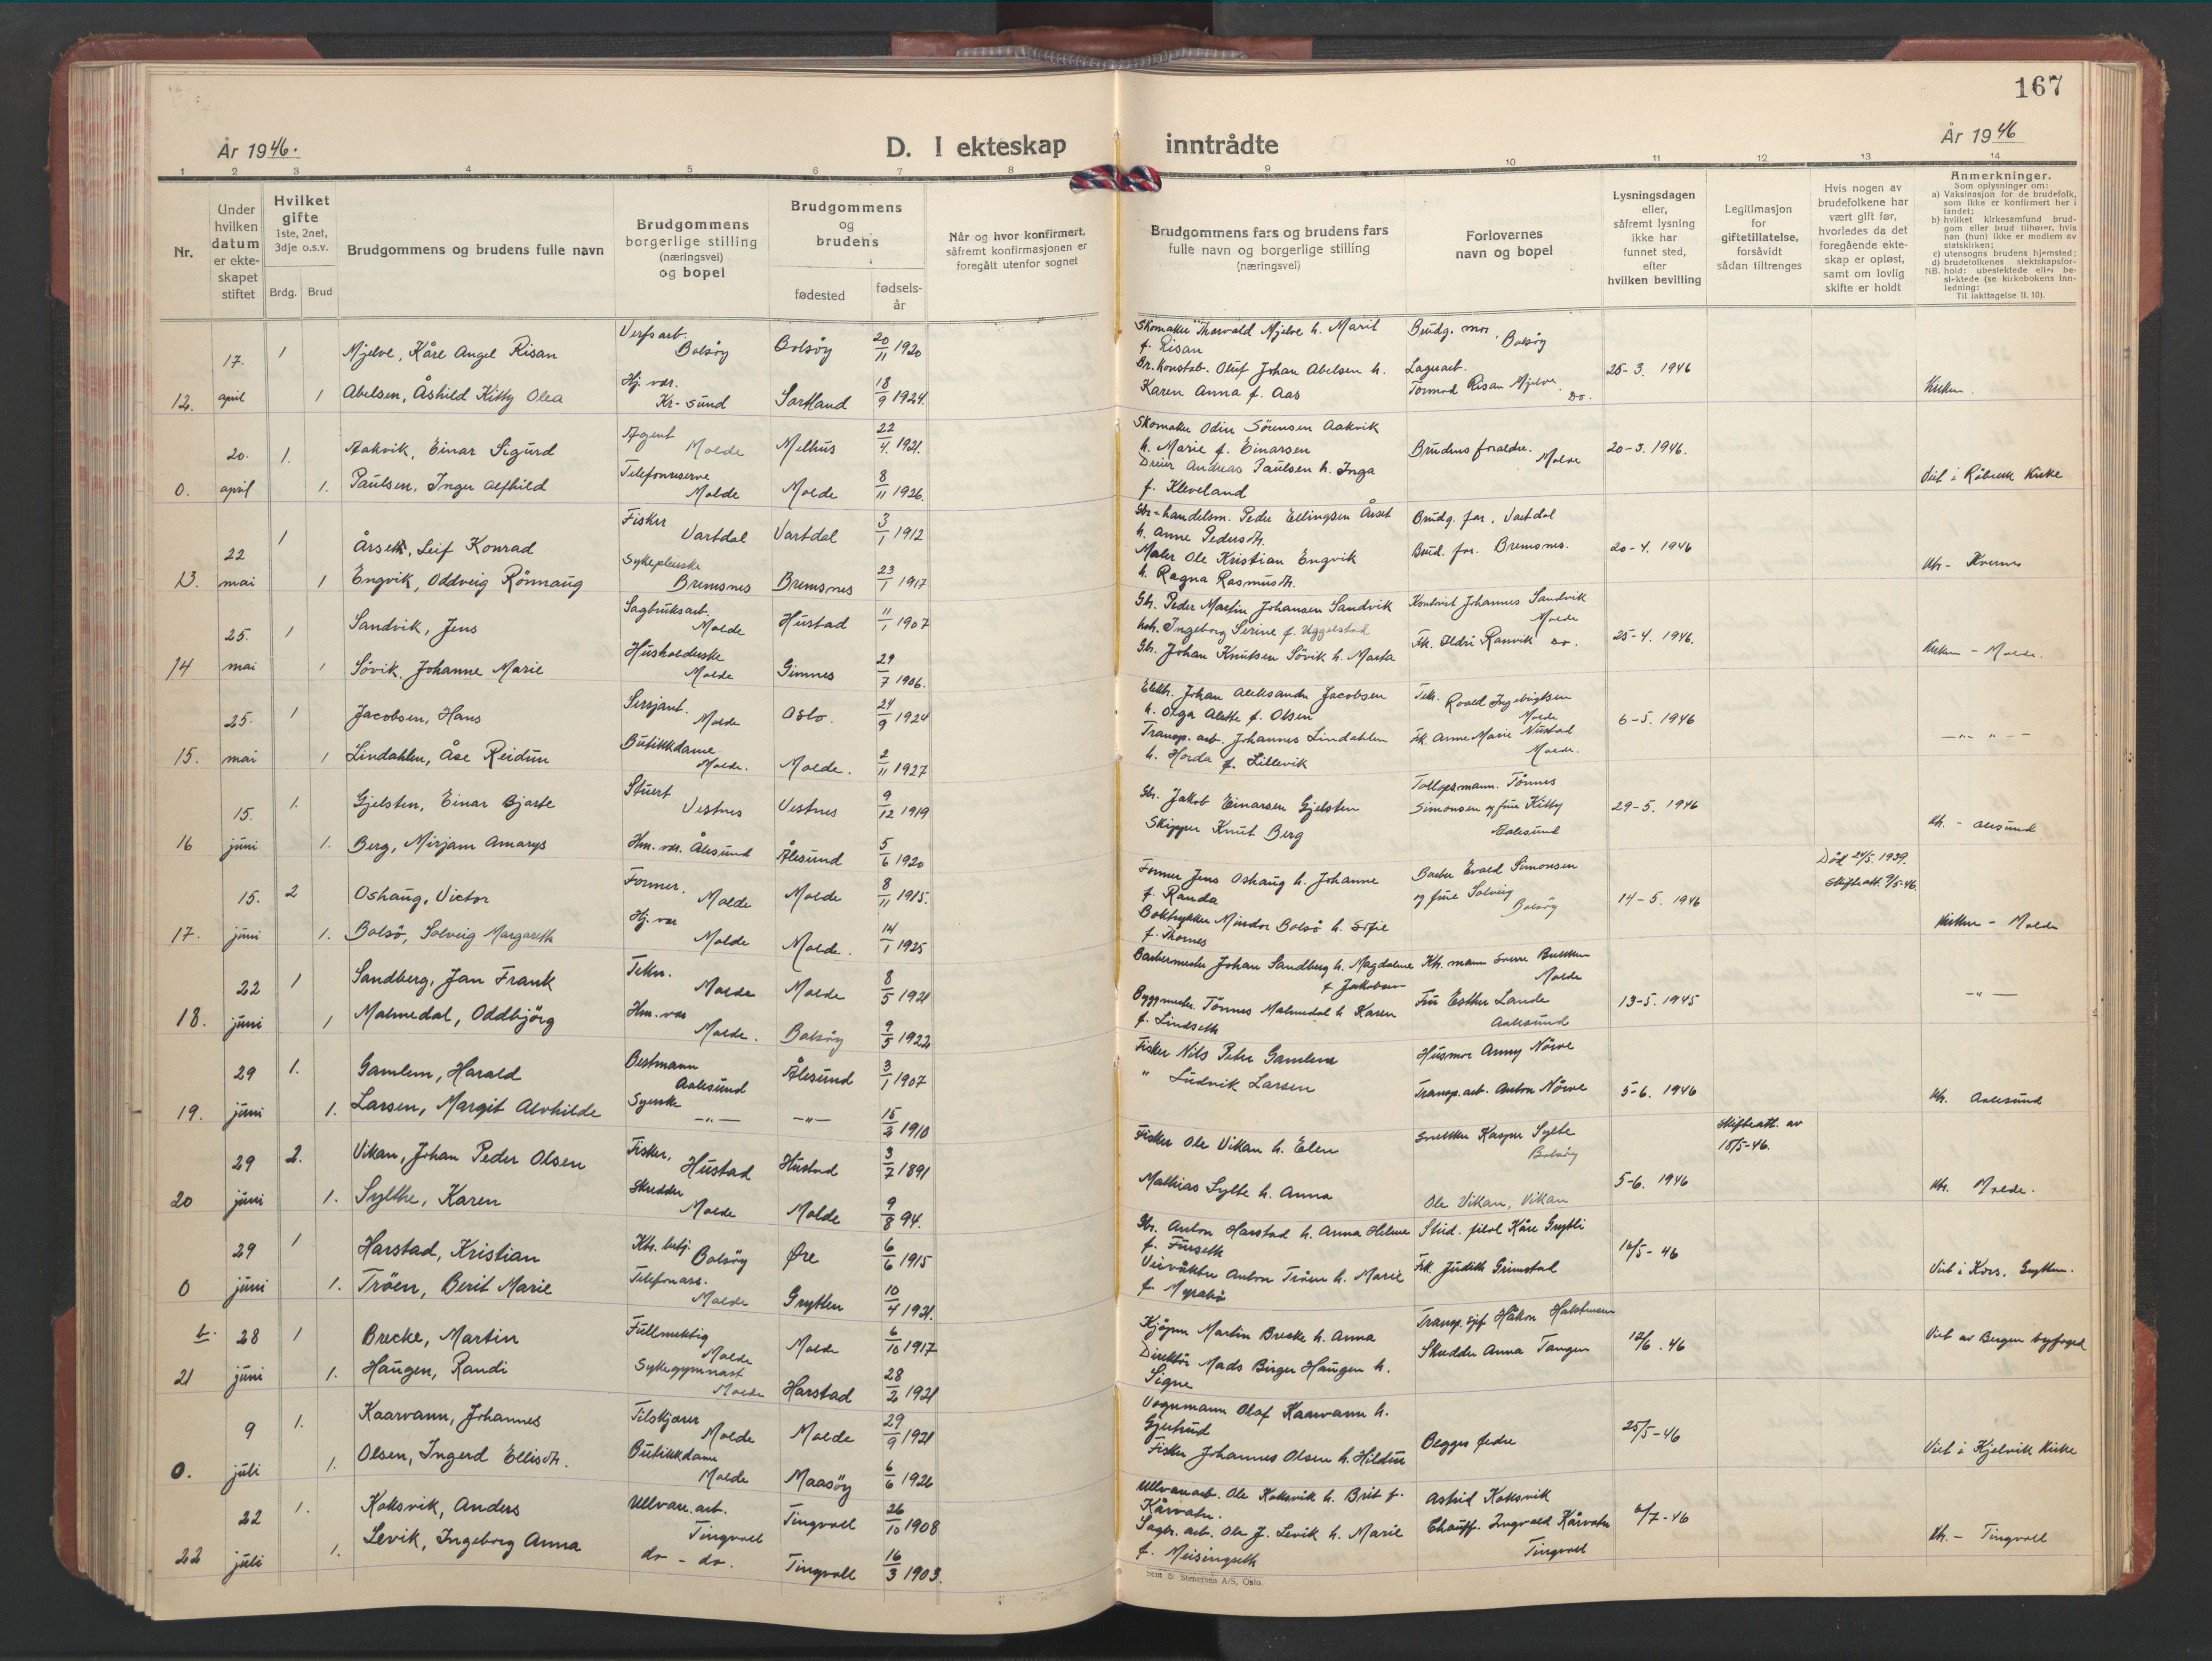 167
År 1946.
D. I ekteskap inntrådte
År 1946
1 2 3 4 5 6 7 8 9 10 11 12 13 14
Nr.
Under hvilken datum er ekteskapet stiftet
Hvilket gifte 1ste, 2net, 3dje o.s.v.
Brdg. Brud
Brudgommens og brudens fulle navn
Brudgommens borgerlige stilling (næringsvei) og bopel
Brudgommens og brudens
fødested
fødsels-år
Når og hvor konfirmert, såfremt konfirmasjonen er foregått utenfor sognet
Brudgommens fars og brudens fars fulle navn og borgerlige stilling (næringsvei)
Forlovernes navn og bopel
Lysningsdagen eller, såfremt lysning ikke har funnet sted, efter hvilken bevilling
Legitimasjon for giftetillatelse, forsåvidt sådan tiltrenges
Hvis nogen av brudefolkene har vært gift før, hvorledes da det foregående ekteskap er opløst, samt om lovlig skifte er holdt
Anmerkninger.
Som oplysninger om:
a) Vaksinasjon for de brudefolk, som ikke er konfirmert her i landet;
b) hvilket kirkesamfund brudgom eller brud tilhører, hvis han (hun) ikke er medlem av statskirken;
c) utensogns brudens hjemsted;
d) brudefolkenes slektskapsforhold: ubeslektede eller beslektede (se kirkebokens innledning:
NB. Til iakttagelse II. 10).
17. 1 Mjelve, Kåre Angel Risan Verfsarb. Bolsøy Bolsøy 20/11 1920 Skomaker Thorvald Mjelve h. Marit f. Risan Brudg. mor, Bolsøy
12. april 1 Abelsen, Åshild Kitty Olea Hj. vær. Kr-sund Sortland 18/9 1924. Br. Konstab. Oluf Johan Abelsen h. Karen Anna f. Aas Lagerarb. Tormod Risan Mjelve. Do. 25-3. 1946 Kirken.
20. 1. Aakvik, Einar Sigurd Agent Molde Melhus 22/4 1921. Skomaker Odin Sörensen Aakvik h. Marie f. Einarsen Brudens foreldre. Molde 20-3. 1946.
0. april 1. Paulsen, Inger Alfhild Molde Molde 8/11 1926. Dreier Andreas Paulsen h. Inga f. Kleveland Viet i Röbekk Kirke
22 1 Årseth, Leif Konrad Fisker Vartdal Vartdal 3/1 1912 Gbr-handelsm. Peder Ellingsen Årset h. Anne Pedersdt. Brudg. far, Vartdal
13. mai 1 Engvik, Oddveig Rönnaug Sykepleierske Bremsnes Bremsnes 23/1 1917 Maler Ole Kristian Engvik h. Ragna Rasmusdt. Brud. far. Bremsnes. 20-4. 1946 Kh - Kvernes
25. 1 Sandvik, Jens Sagbruksarb. Molde Hustad 11/1 1907 Gbr. Peder Martin Johansen Sandvik h. Ingeborg Serine f. Uggelstad Johannes Sandvik Molde
14 mai 1 Sövik, Johanne Marie Husholderske Molde Gimnes 29/7 1906. Gbr. Johan Knutsen Sövik h. Marta Frk. Eldri Ranvik Do. 25-4. 1946. Kirken - Molde.
25. 1 Jacobsen, Hans Sersjant. Molde Oslo. 24/9 1924 Elektr. Johan Aleksander Jacobsen h. Olga Alette f. Olsen Tekn. Roald Ingebrigtsen Molde
15. mai 1 Lindahlen, Åse Reidun Butikkdame Molde. Molde. 2/11 1927 Transp. arb. Johannes Lindahlen h. Hjørda f. Lillevik Frk. Anne Marie Nustad Molde. 6-5. 1946 - " " -
15. 1. Gjelsten, Einar Bjarte Stuert Vestnes Vestnes 9/12 1919 Gbr. Jakob Einarsen Gjelsten Tollopsmann. Tönnes Simonsen og frue Kitty Aalesund
16 juni 1. Berg, Mirjam Amarys Hm. vær. Ålesund Ålesund 5/6 1920 Skipper Knut Berg 29-5. 1946 Kh. - Ålesund
15. 2 Oshaug, Victor Former. Molde Molde 8/11 1915. Former Jens Oshaug h. Johanne f. Randa Barber Evald Simonsen og frue Solveig Bolsøy Död 24/5. 1939. Skifteatt. 9/5-46.
17. juni 1. Bolsö, Solveig Margareth Hj. vær Molde Molde. 14/1 1925 Boktrykker Mindor Bolsö h. Sofie f. Thornes 14-5. 1946 Kirken - Molde
22 1 Sandberg, Jan Frank Tekn. Molde Molde 8/5 1921 Barbermester Johan Sandberg h. Magdalene f. Jakobsen Kh. mann Sverre Brekken Molde
18. juni 1 Malmedal, Oddbjörg Hm. vær Molde. Bolsöy 9/5 1922 Byggmester Tönnes Malmedal h Karen f. Lindseth Fru Esther Lande Aalesund 13-5. 1945 - " -
29 1. Gamlem, Harald Bestmann Aalesund Ålesund 3/1 1907 Fisker Nils Peter Gamlem Husmor Anny Nörve
19. juni 1. Larsen, Margit Alvhilde Syerske - " - - " - 15/2 1910 " Ludvik Larsen Transp. arb. Anton Nörve 5-6. 1946 Kh. Aalesund
29 2. Vikan, Johan Peder Olsen Fisker, Hustad Hustad 3/7 1891 Fisker Ole Vikan h. Elen Snekker Kasper Sylte Bolsøy Skifteatt. av 18/5-46.
20 juni 1. Sylthe, Karen Skredder Molde Molde 9/8 94. Mathias Sylte h. Anna Ole Vikan, Vikan 5-6. 1946 Kh. Molde.
29 1 Harstad, Kristian Ktr. betj. Bolsöy Øre 6/6 1915 Gbr. Anton Harstad h. Anna Helene f. Furseth Stud. filol Kåre
0 juni 1. Tröen, Berit Marie Telefonass. Molde Grytten 10/4 1921. Veivokter Anton Tröen h. Marie f. Myrabö Frk. Judith Grimstad 16/5-46 Viet i Kors, Grytten.
28 1 Brecke, Martin Fullmektig Molde Molde 6/10 1917 Kjøpm Martin Brecke h. Anna Transp. sjef Håkon
21 juni 1. Haugen, Randi Sykegymnast Molde Harstad 28/2 1921 Direktör Mads Birger Haugen h. Signe Skredder Anna Tangen 12/6. 46 Viet av Bergen byfoged
9 1. Kaarvann, Johannes Tilskjærer Molde Molde 29/9 1921 Vognmann Olaf Kaarvann h. Gjertrud
0. juli 1. Olsen, Ingerd Ellisdt. Butikkdame Molde Maasöy 6/6 1926 Fisker Johannes Olsen h. Hildur Begges fedre 25/5-46 Viet i Kjelvik Kirke
22 1. Koksvik, Anders Ullvare. arb. Tingvoll Tingvoll 26/10 1908 Ullvarearb. Ole Koksvik h. Brit f. Kårvatn. Astrid Koksvik
22 juli 1. Levik, Ingeborg Anna do - do. Tingvoll 16/3 1903. Sagbr. arb. Ole J. Levik h. Marie f. Meisingseth Chauff. Ingvald Kårvatn Tingvoll 6/7-46 Kh. - Tingvoll
Sem & Stenersen A/S, Oslo.